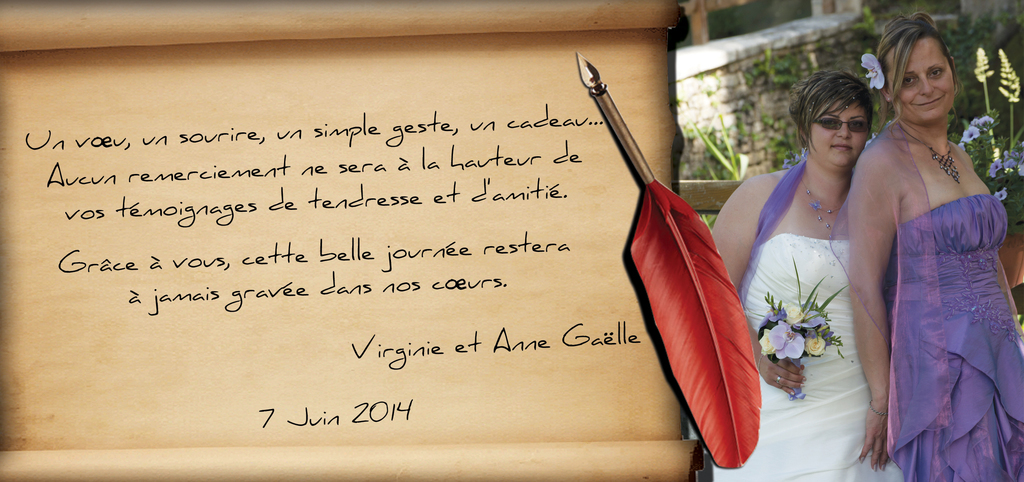 Un vœu, un sourire, un simple geste, un cadeau...
Aucun remerciement ne sera à la hauteur de
vos témoignages de tendresse et d'amitié.
Grâce à vous, cette belle journée restera
à jamais gravée dans nos cœurs.
Virginie et Anne Gaëlle
7 Juin 2014